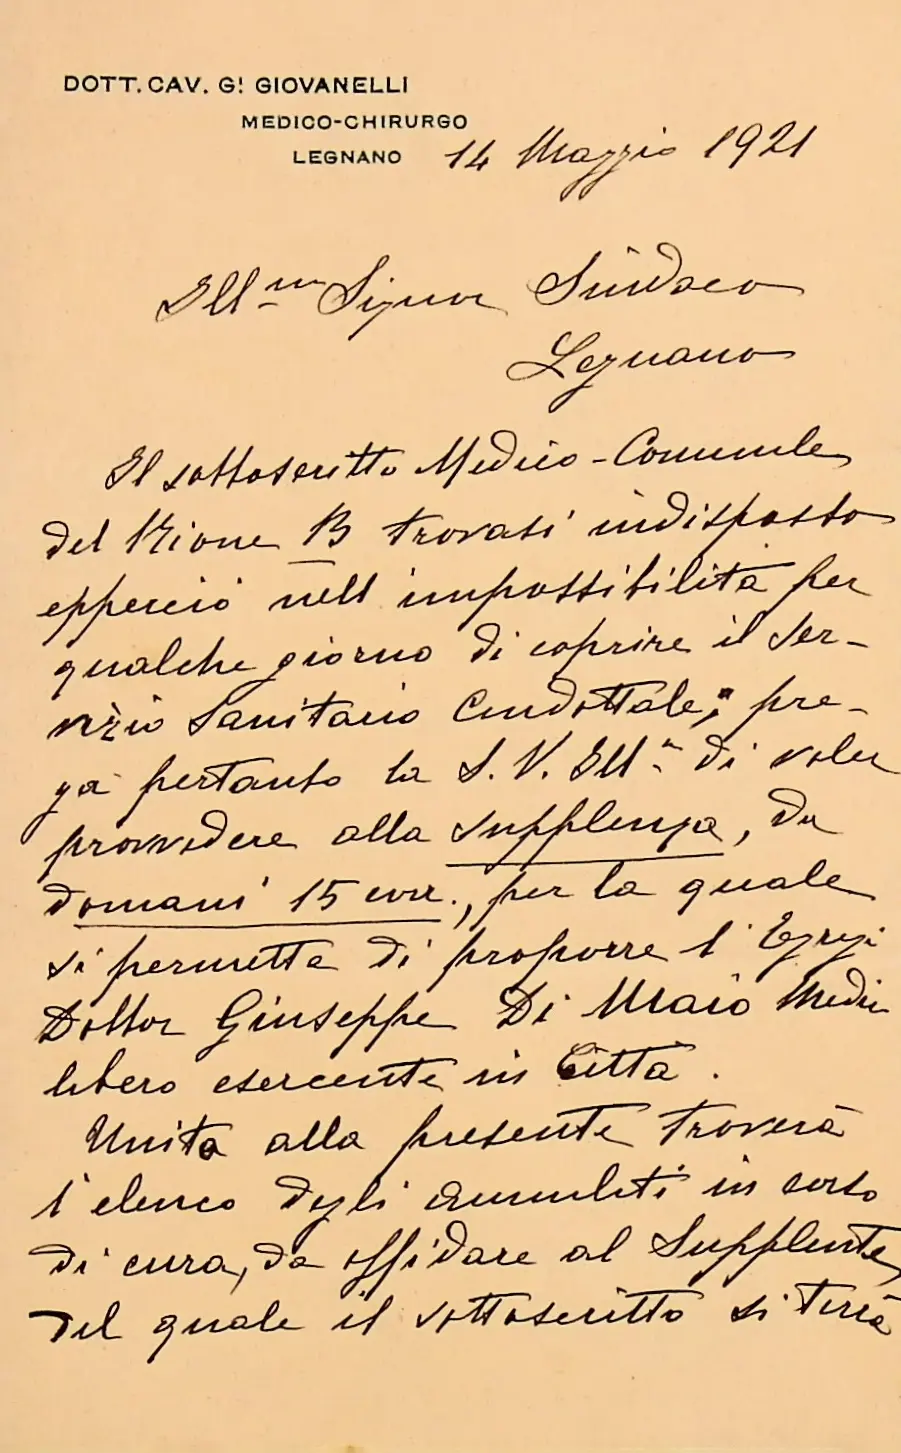 DOTT. CAV. G! GIOVANELLI
MEDICO-CHIRURGO
LEGNANO 14 Maggio 1921
Ill.mo Signor Sindaco
Legnano
Il sottoscritto Medico-Comunale
del Rione B trovasi indisposto
epperciò nell'impossibilità per
qualche giorno di coprire il ser-
vizio Sanitario Condottale; pre-
ga pertanto la S. V. Ill.a di voler
provvedere alla supplenza, da
domani 15 corr., per la quale
si permette di proporre l'Egregi
Dottor Giuseppe Di Maio Medico
libero esercente in Città.
Unita alla presente troverà
l'elenco degli ammalati in corso
di cura, da affidare al Supplente,
del quale il sottoscritto si terrà